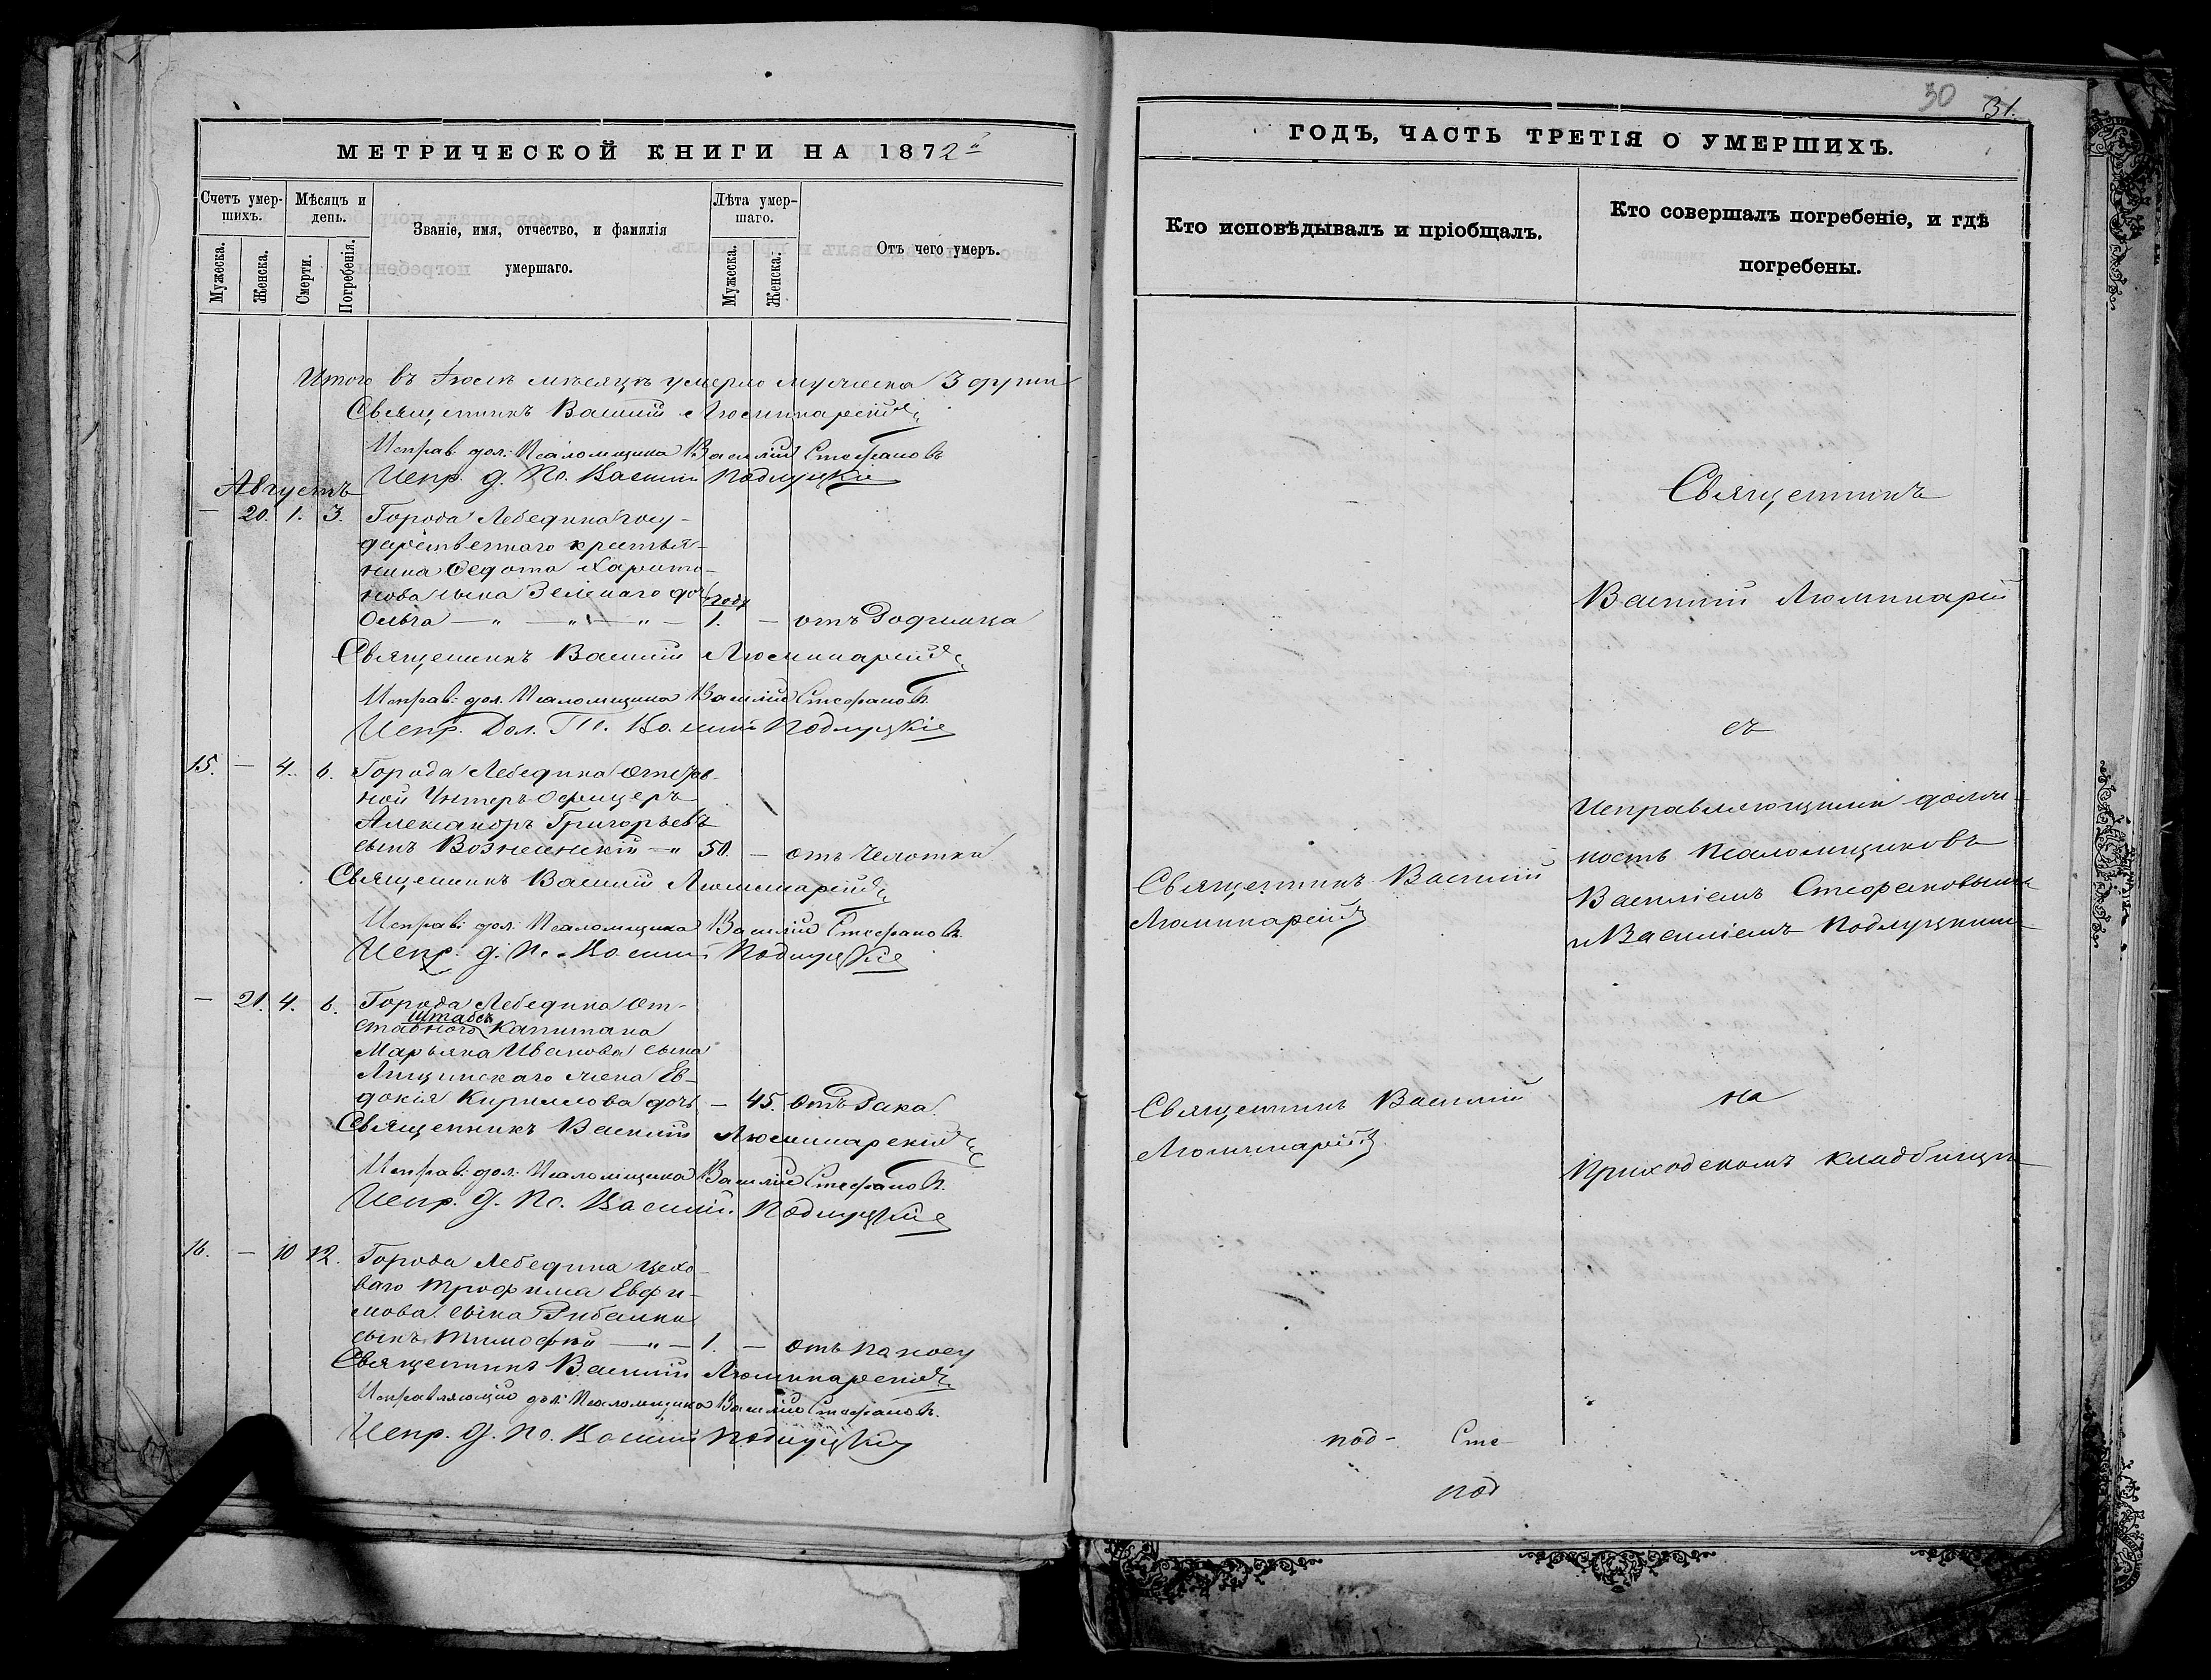 МЕТРИЧЕСКОЙ КНИГИ НА 1872й
Счетъ умер-
шихъ.
Мужеска.
Женска.
Мѣсяцъ и
день.
Смерти.
Погребенія.
Званіе, имя, отчество, и фамилія
умершаго.
Лѣта умер-
шаго.
Мужеска.
Женска.
Отъ чего умеръ.
Итого въ Іюлѣ мѣсяцѣ умерло мужеска 3 души
Священникъ Василій Люминарскій
Исправ: дол: Псаломщика Василій Стефановъ
Испр. д. Пс. Василій Подлуцкій
Августъ
— 20. 1. 3. Города Лебедина госу-
дарственнаго крестья-
нина Федота Харито-
нова сына Зеленаго дочь
году
Ольга — " — " — " — 1. — отъ Родимца
Священникъ Василій Люминарскій
Исправ: дол. Псаломщика Василій Стефановъ.
Испр. Дол. Пс. Василій Подлуцкій
15. — 4. 6. Города Лебедина отстав-
ной Унтеръ-Офицеръ
Александръ Григорьевъ
сынъ Вознесенскій — " 50. — отъ Чахотки
Священникъ Василій Люминарскій
Исправ: дол: Псаломщика Василій Стефановъ.
Испр. д. Пс. Василій Подлуцкій
— 21. 4. 6. Города Лебедина От-
штабсъ
ставного Капитана
Марьяна Иванова сына
Лищинскаго жена Ев-
докія Кириллова дочь — 45. Отъ Рака.
Священникъ Василій Люминарскій
Исправ: дол: Псаломщика Василій Стефановъ.
Испр. д. Пс. Василій Подлуцкій
16. — 10 12. Города Лебедина цехо-
ваго Трофима Евфи-
мова сына Рибалки
сынъ Тимофѣй — " — 1. — Отъ поносу
Священникъ Василій Люминарскій
Исправляющій дол: Псаломщика Василій Стефановъ.
Испр. д. Пс. Василій Подлуцкій
30 31.
ГОДЪ, ЧАСТЬ ТРЕТІЯ О УМЕРШИХЪ.
Кто исповѣдывалъ и пріобщалъ.
Кто совершалъ погребеніе, и гдѣ
погребены.
Священникъ
Василій Люминарскій
съ
Исправляющими долж-
ность Псаломщиковъ
Василіемъ Стефановымъ
и Василіемъ Подлуцкимъ
на
Приходскомъ кладбищѣ
Священникъ Василій
Люминарскій
Священникъ Василій
Люминарскій
под- Сте-
под